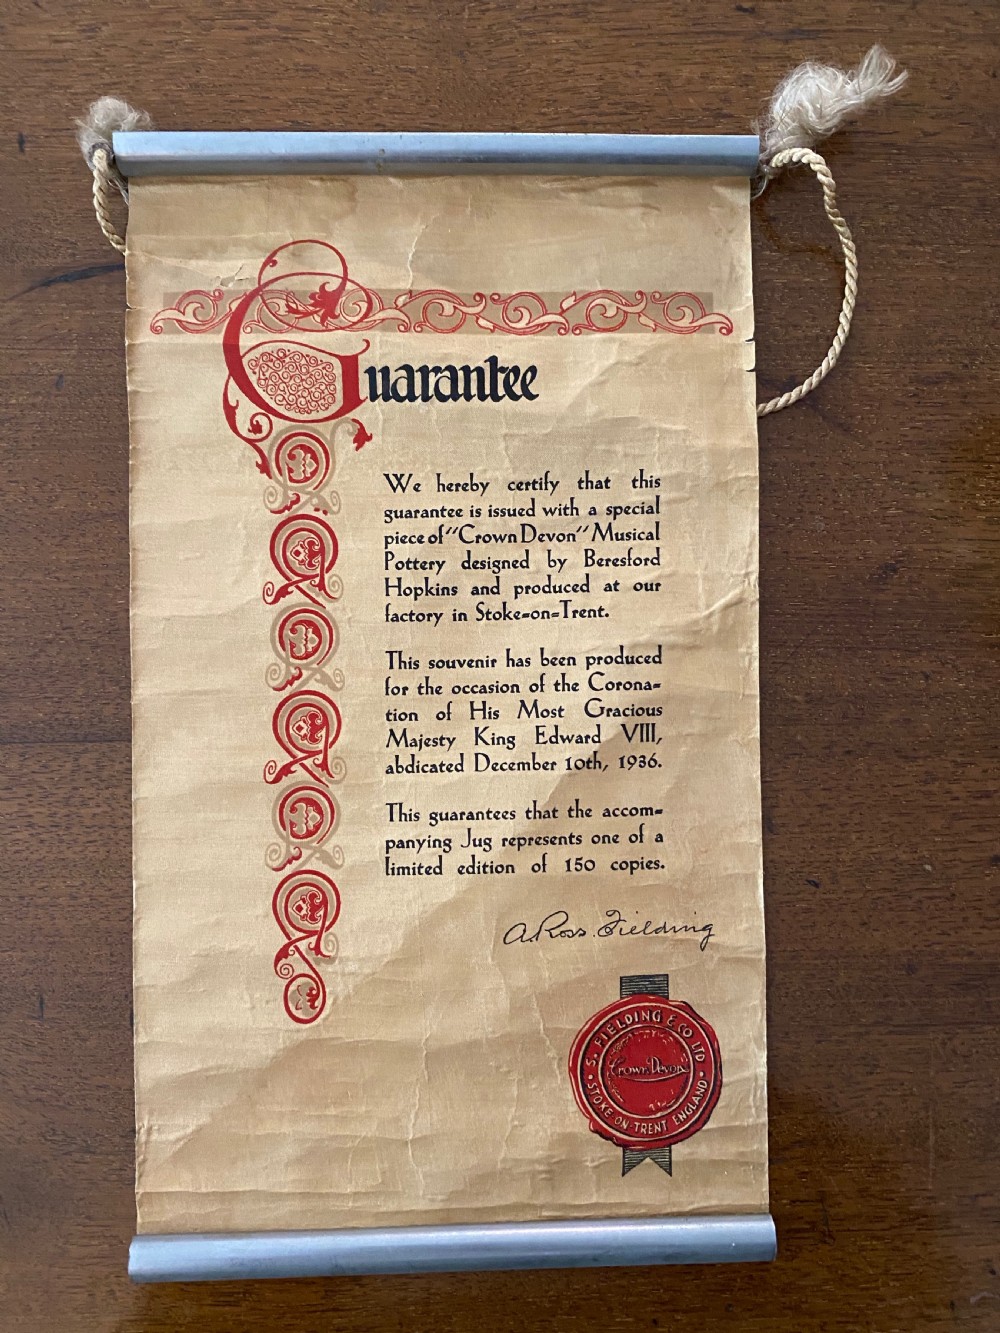 Guarantee
We hereby certify that this
guarantee is issued with a special
piece of "Crown Devon" Musical
Pottery designed by Beresford
Hopkins and produced at our
factory in Stoke-on-Trent.
This souvenir has been produced
for the occasion of the Corona-
tion of His Most Gracious
Majesty King Edward VIII,
abdicated December 10th, 1936.
This guarantees that the accom-
panying Jug represents one of a
limited edition of 150 copies.
A. Ross. Fielding
S. FIELDING & CO LTD
Crown Devon
STOKE-ON-TRENT ENGLAND